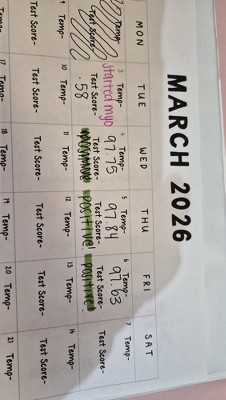 MARCH 2026
MON TUE WED THU FRI SAT
Temp- 3 Temp- 4 Temp- 5 Temp- 6 Temp- 7 Temp-
Started myo 97.75 97.84 97.63
Test Score- Test Score- Test Score- Test Score- Test Score- Test Score-
.58 positive! positive!
9 Temp- 10 Temp- 11 Temp- 12 Temp- 13 Temp- 14 Temp-
Test Score- Test Score- Test Score- Test Score- Test Score- Test Score-
17 Temp- 18 Temp- 19 Temp- 20 Temp- 21 Temp-